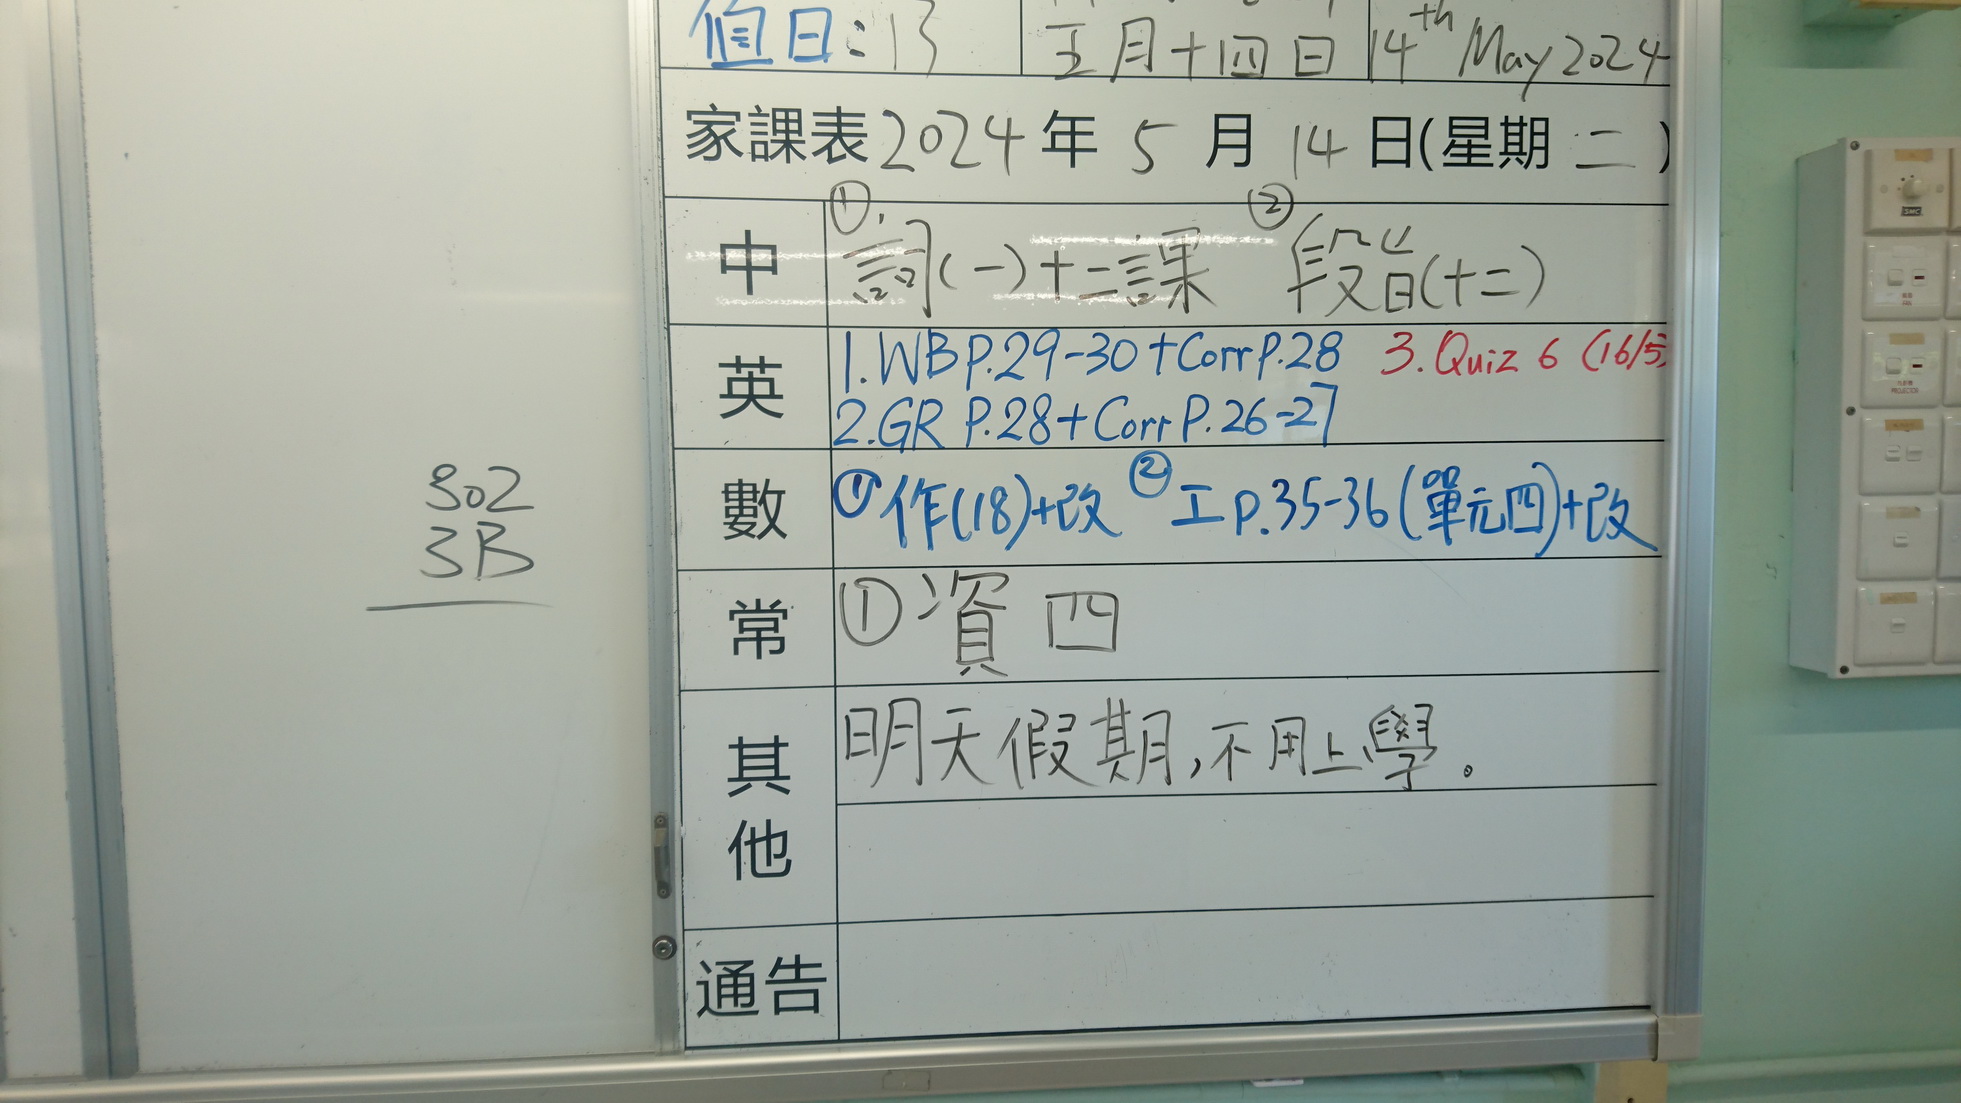 值日:13 五月十四日 14th May 2024
家課表2024年5月14日(星期二)
中 ①詞(一)十二課 ②段旨(十二)
英 1.WB P.29-30+Corr P.28 3.Quiz 6 (16/5)
2.GR P.28+Corr P.26-27
數 ①作(18)+改 ②工P.35-36(單元四)+改
常 ①資四
其他 明天假期,不用上學。
通告
302
3B